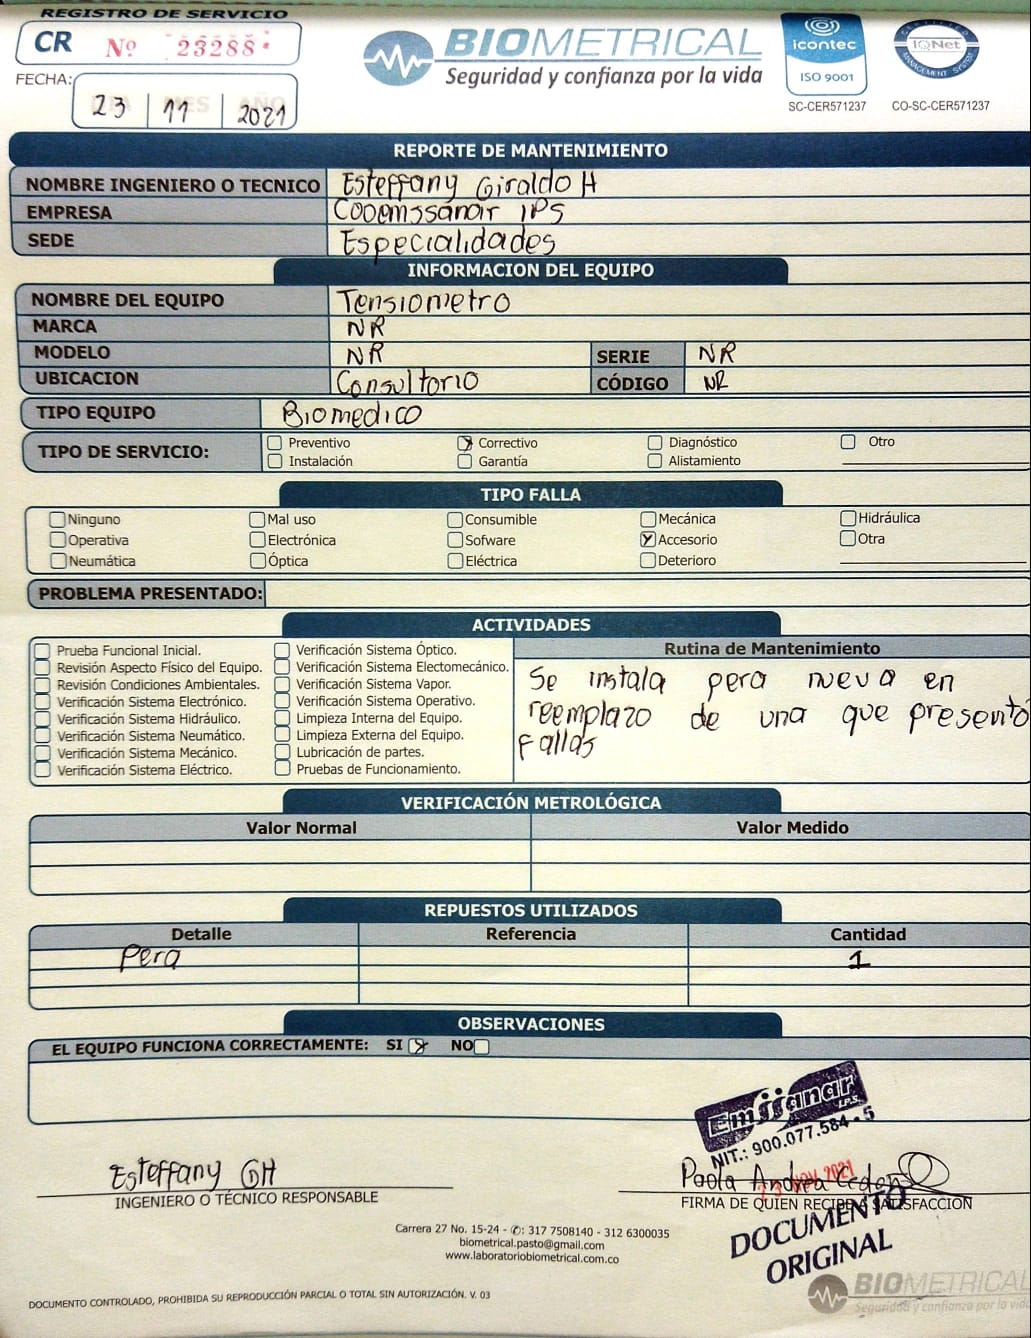 REGISTRO DE SERVICIO
CR Nº 23288
FECHA: 23 11 2021
BIOMETRICAL
Seguridad y confianza por la vida
icontec
ISO 9001
SC-CER571237
IQNet
MANAGEMENT SYSTEM
CO-SC-CER571237
REPORTE DE MANTENIMIENTO
NOMBRE INGENIERO O TECNICO Esteffany Giraldo H
EMPRESA Cooemssanar IPS
SEDE Especialidades
INFORMACION DEL EQUIPO
NOMBRE DEL EQUIPO Tensiometro
MARCA NR
MODELO NR SERIE NR
UBICACION Consultorio CÓDIGO NR
TIPO EQUIPO Biomedico
TIPO DE SERVICIO:
Preventivo Correctivo Diagnóstico Otro
Instalación Garantía Alistamiento
TIPO FALLA
Ninguno Mal uso Consumible Mecánica Hidráulica
Operativa Electrónica Sofware Accesorio Otra
Neumática Óptica Eléctrica Deterioro
PROBLEMA PRESENTADO:
ACTIVIDADES
Prueba Funcional Inicial.
Revisión Aspecto Físico del Equipo.
Revisión Condiciones Ambientales.
Verificación Sistema Electrónico.
Verificación Sistema Hidráulico.
Verificación Sistema Neumático.
Verificación Sistema Mecánico.
Verificación Sistema Eléctrico.
Verificación Sistema Óptico.
Verificación Sistema Electomecánico.
Verificación Sistema Vapor.
Verificación Sistema Operativo.
Limpieza Interna del Equipo.
Limpieza Externa del Equipo.
Lubricación de partes.
Pruebas de Funcionamiento.
Rutina de Mantenimiento
Se instala pera nueva en
reemplazo de una que presentó
fallas
VERIFICACIÓN METROLÓGICA
Valor Normal Valor Medido
REPUESTOS UTILIZADOS
Detalle Referencia Cantidad
Pera 1
OBSERVACIONES
EL EQUIPO FUNCIONA CORRECTAMENTE: SI NO
Emssanar
I.P.S.
NIT.: 900.077.584-5
23 NOV 2021
Esteffany GH
INGENIERO O TÉCNICO RESPONSABLE
Paola Andrea
FIRMA DE QUIEN RECIBE A SATISFACCIÓN
DOCUMENTO
ORIGINAL
Carrera 27 No. 15-24 - ✆: 317 7508140 - 312 6300035
biometrical.pasto@gmail.com
www.laboratoriobiometrical.com.co
BIOMETRICAL
Seguridad y confianza por la vida
DOCUMENTO CONTROLADO, PROHIBIDA SU REPRODUCCIÓN PARCIAL O TOTAL SIN AUTORIZACIÓN. V. 03